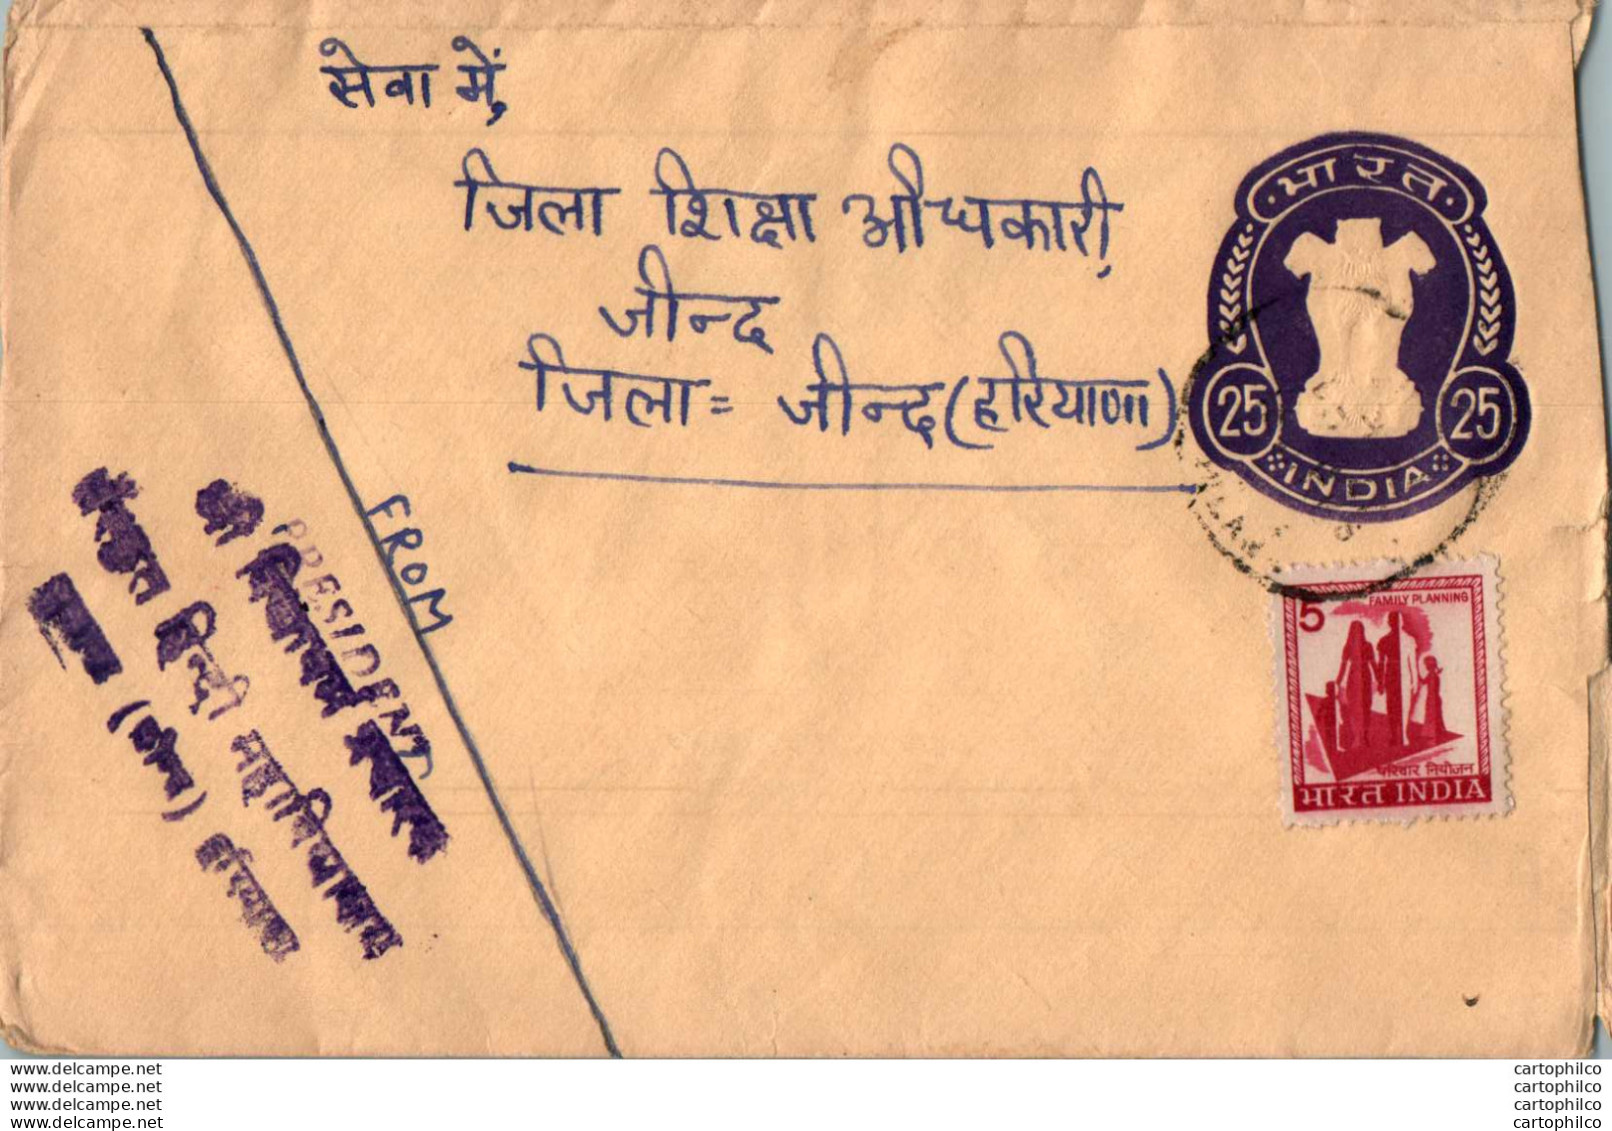 सेवा में,
जिला शिक्षा औधकारी,
जीन्द
जिला = जीन्द (हरियाणा)
भारत
25 25
INDIA
FROM
PRESIDENT
श्री
हिन्दी महाविद्यालय
(जीन्द) हरियाणा
5 FAMILY PLANNING
परिवार नियोजन
भारत INDIA
www.delcampe.net
www.delcampe.net
www.delcampe.net
www.delcampe.net
cartophilco
cartophilco
cartophilco
cartophilco